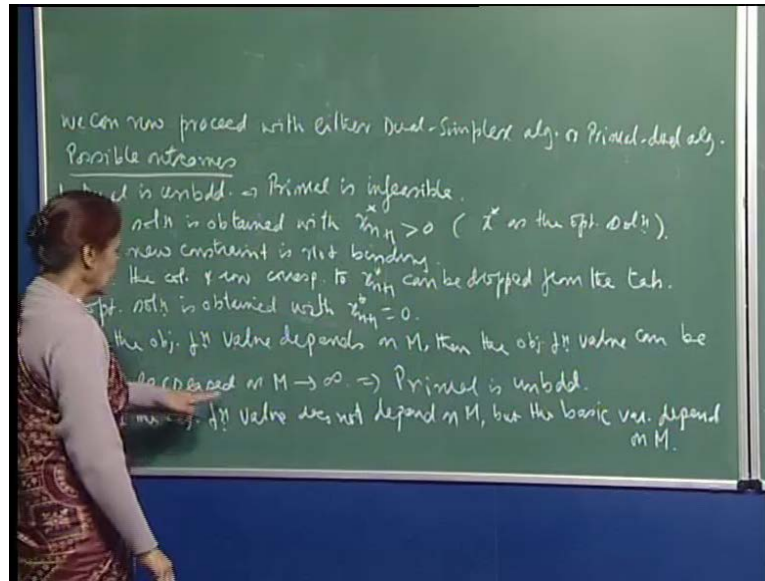 We can now proceed with either Dual-Simplex alg. or Primal-dual alg.
Possible outcomes
is unbdd. ⇒ Primal is infeasible.
solⁿ is obtained with x*ₙ₊₁ > 0 ( x* as the opt. solⁿ).
new constraint is not binding.
the col. & row corresp. to x*ₙ₊₁ can be dropped from the tab.
opt. solⁿ is obtained with x*ₙ₊₁ = 0.
the obj. fⁿ value depends on M, then the obj. fⁿ value can be
decreased as M → ∞. ⇒ Primal is unbdd.
obj. fⁿ value does not depend on M, but the basic var. depend
on M.